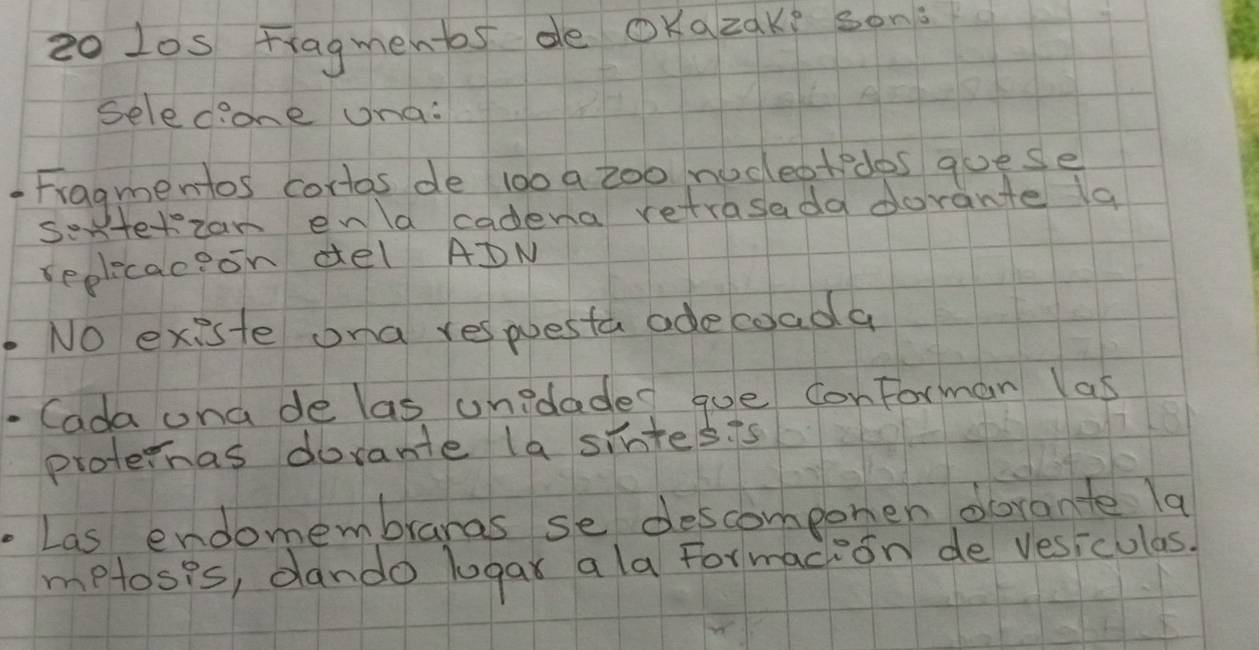 20 Los Fragmentos de Okazaki son:
Selecione una:
• Fragmentos cortos de 100 a 200 nucleotidos que se
sintetizan en la cadena retrasada durante la
replicación del ADN
• No existe una respuesta adecuada
• Cada una de las unidades que conforman las
proteínas durante la síntesis
• Las endomembranas se descomponen durante la
mitosis, dando lugar a la Formación de vesículas.